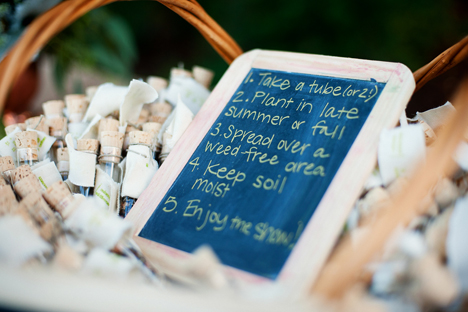 1. Take a tube (or 2!)
2. Plant in late
summer or fall
3. Spread over a
weed free area
4. Keep soil
moist
5. Enjoy the